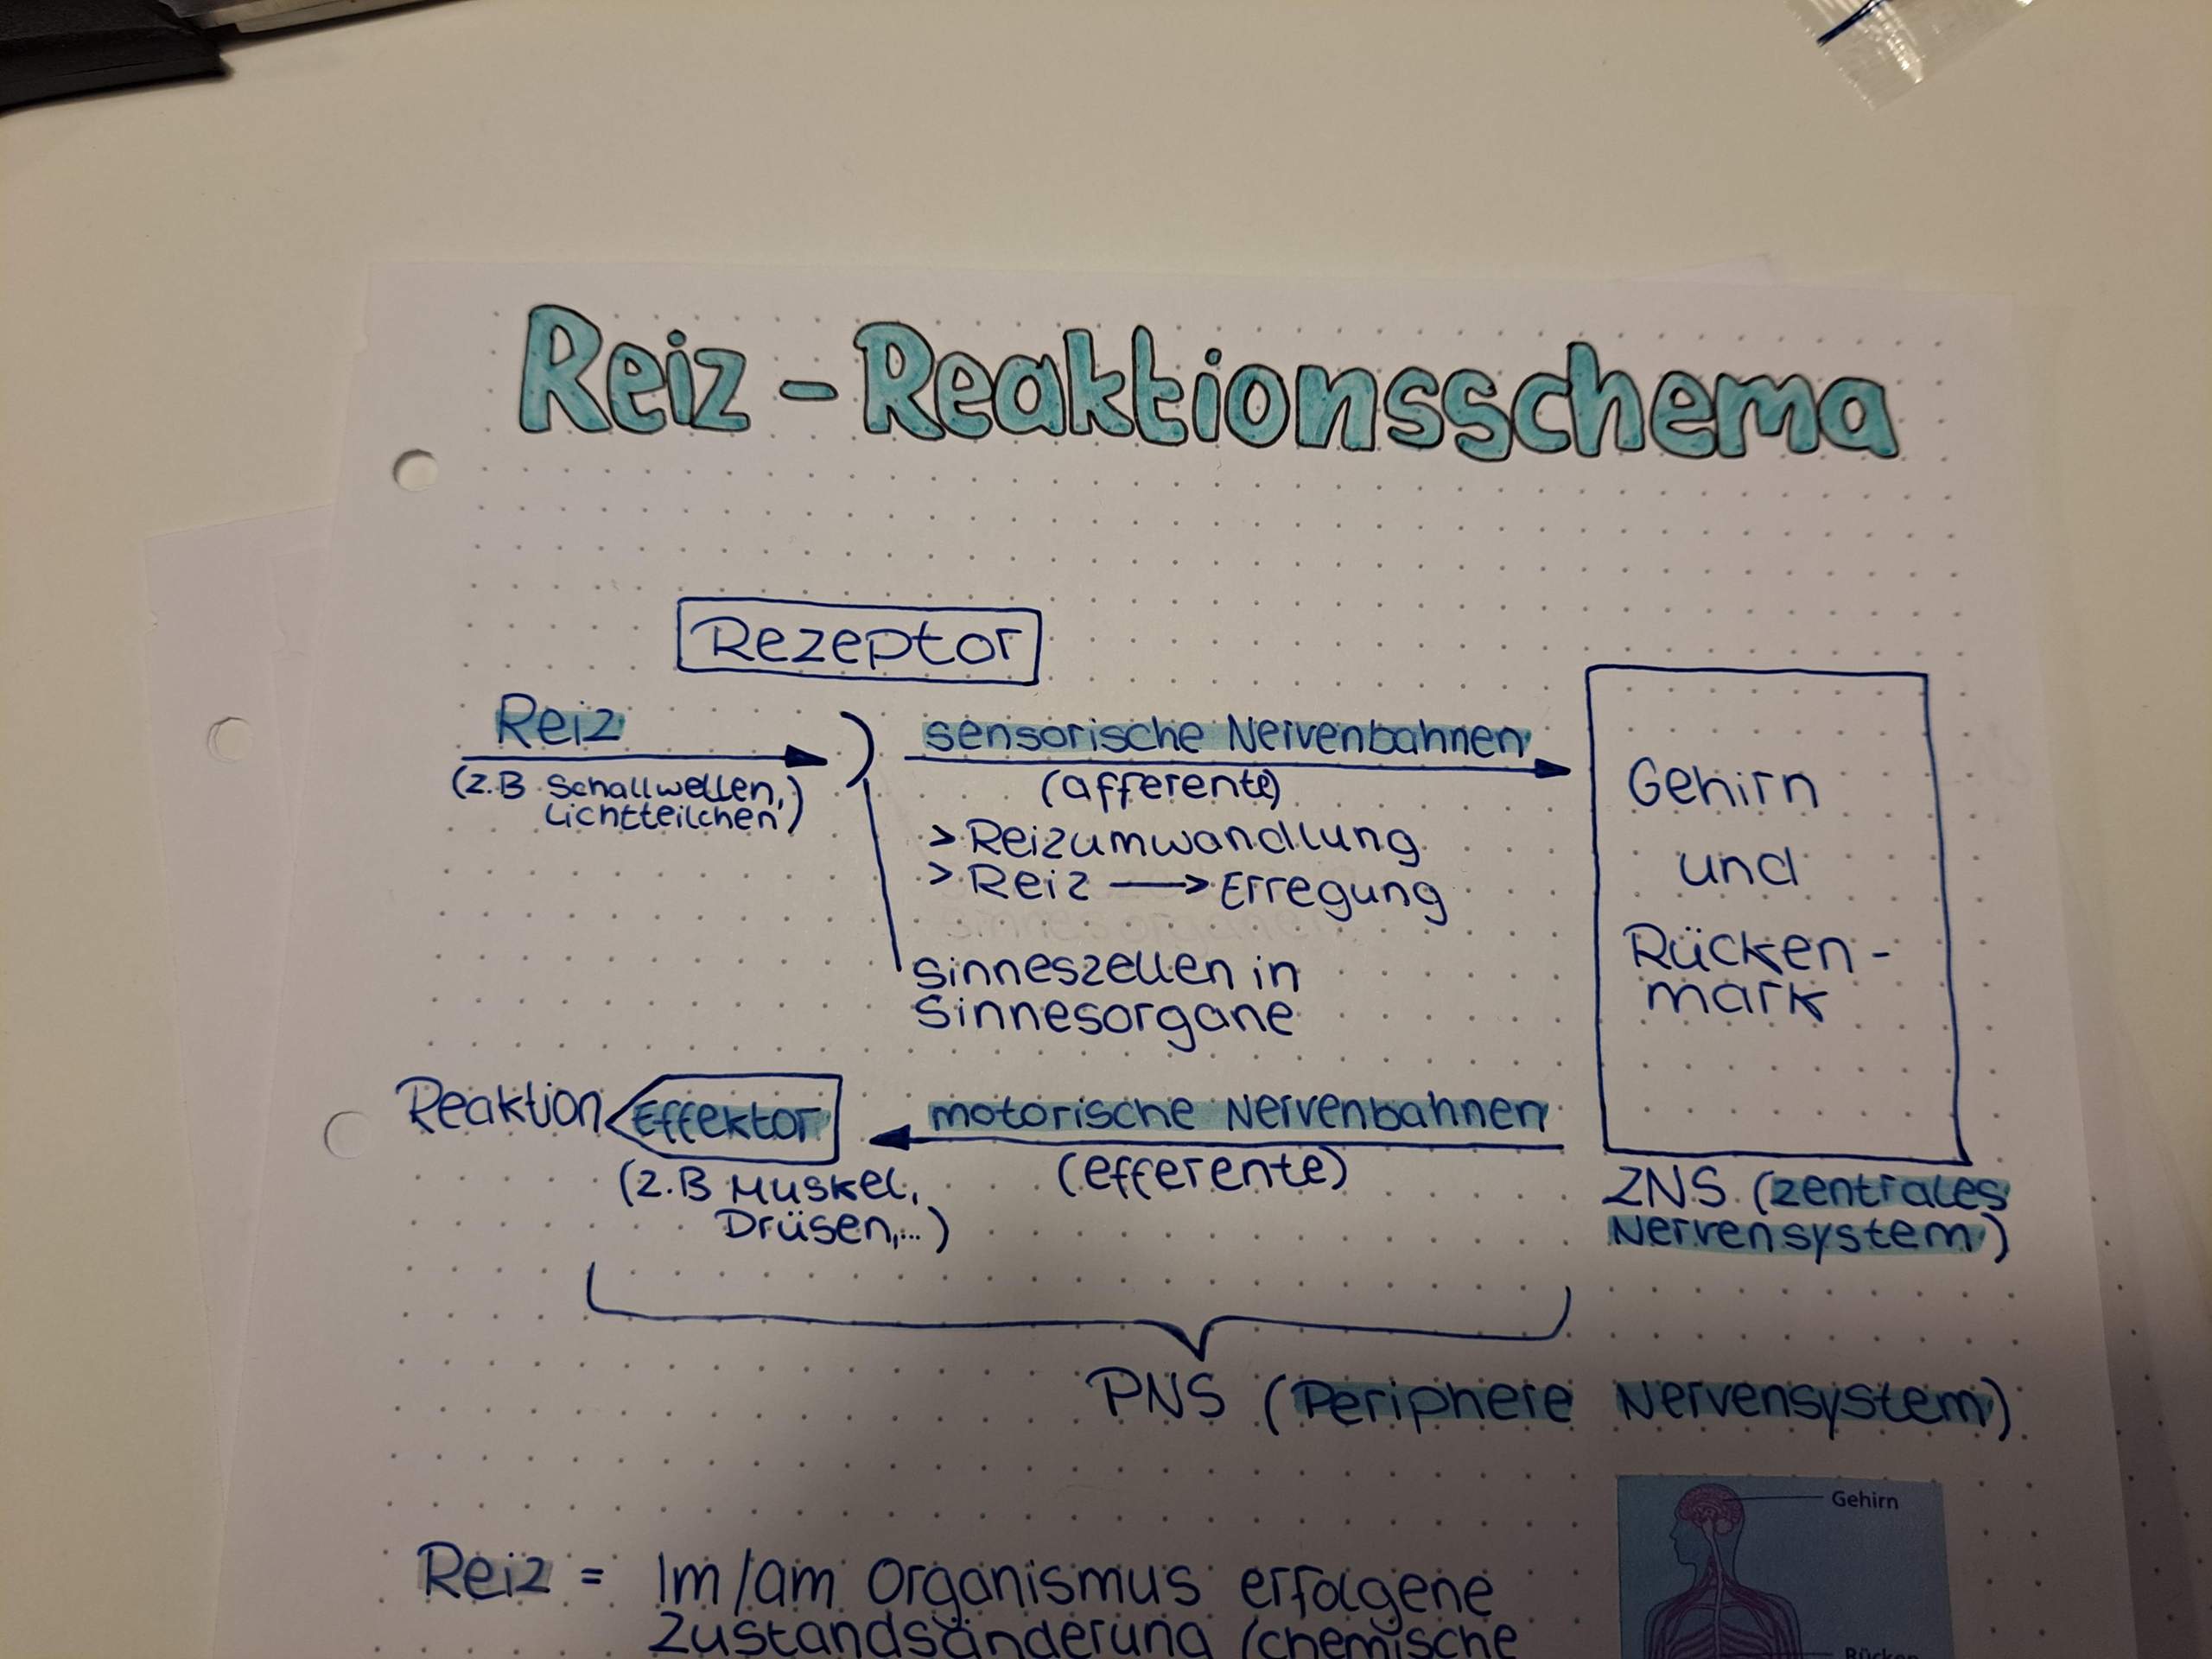 Reiz - Reaktionsschema
Rezeptor
Reiz
(z.B Schallwellen,
Lichtteilchen)
sensorische Nervenbahnen
(afferente)
> Reizumwandlung
> Reiz → Erregung
Sinneszellen in
Sinnesorgane
Gehirn
und
Rücken-
mark
Reaktion
Effektor
motorische Nervenbahnen
(z.B Muskel,
Drüsen,...)
(efferente)
ZNS (zentrales
Nervensystem)
PNS (Periphere Nervensystem)
Gehirn
Reiz = Im/am Organismus erfolgene
Zustandsänderung (chemische
Rücken